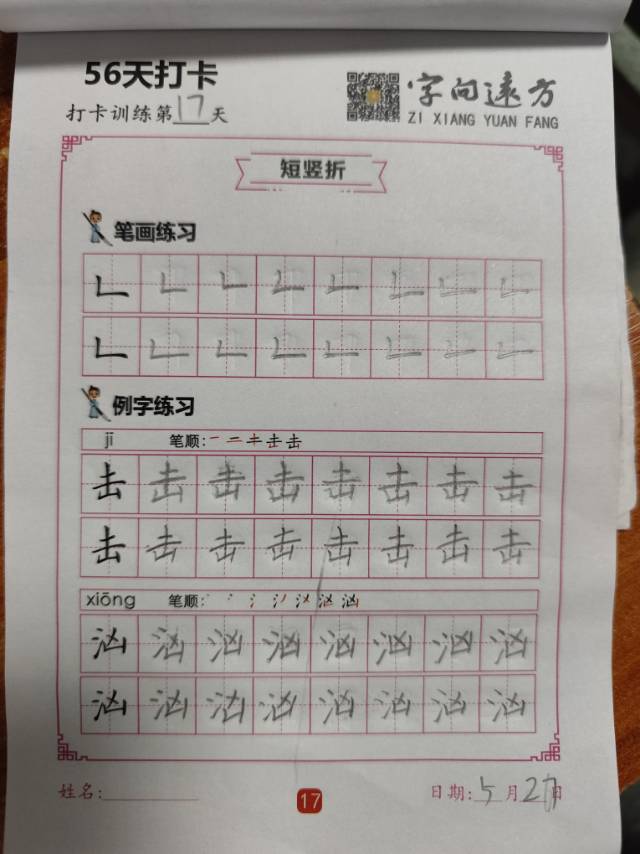 56天打卡
打卡训练第17天
字向遠方
ZI XIANG YUAN FANG
短竖折
笔画练习
例字练习
jī 笔顺:
击 击 击 击 击 击 击 击
击 击 击 击 击 击 击 击
xiōng 笔顺:
汹 汹 汹 汹 汹 汹 汹 汹
汹 汹 汹 汹 汹 汹 汹 汹
姓名:
17
日期:5月27日